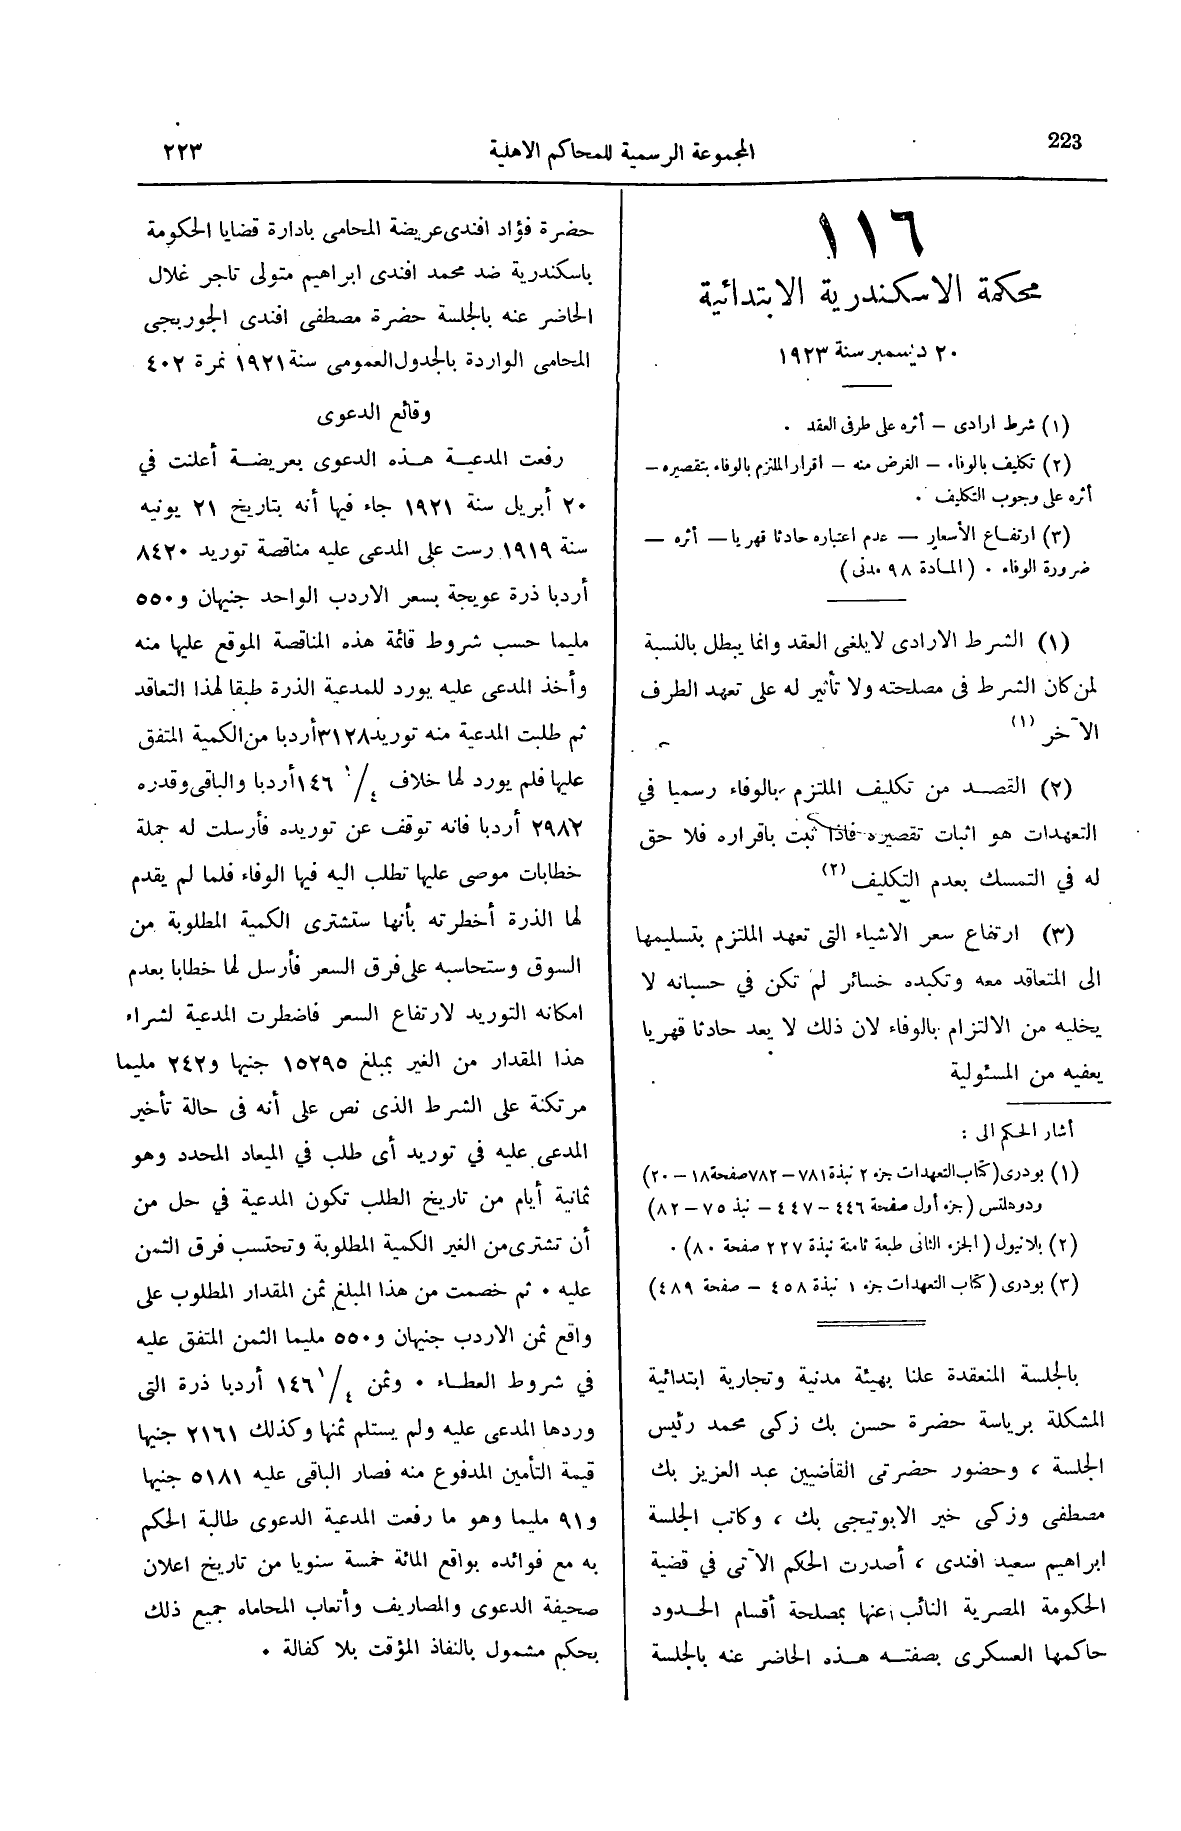 223
المجموعة الرسمية للمحاكم الاهلية
٢٢٣
١١٦
محكمة الاسكندرية الابتدائية
٢٠ ديسمبر سنة ١٩٢٣
(١) شرط ارادى – أثره على طرفى العقد .
(٢) تكليف بالوفاء – الغرض منه – اقرار الملتزم بالوفاء بتقصيره –
أثره على وجوب التكليف .
(٣) ارتفاع الأسعار – عدم اعتباره حادثا قهريا – أثره –
ضرورة الوفاء . (المادة ٩٨ مدنى)
(١) الشرط الارادى لايلغى العقد وانما يبطل بالنسبة
لمن كان الشرط فى مصلحته ولا تأثير له على تعهد الطرف
الآخر (١)
(٢) القصد من تكليف الملتزم بالوفاء رسميا في
التعهدات هو اثبات تقصيره فاذا ثبت باقراره فلا حق
له في التمسك بعدم التكليف (٢)
(٣) ارتفاع سعر الاشياء التى تعهد الملتزم بتسليمها
الى المتعاقد معه وتكبده خسائر لم تكن في حسبانه لا
يخليه من الالتزام بالوفاء لان ذلك لا يعد حادثا قهريا
يعفيه من المسئولية
أشار الحكم الى :
(١) بودرى (كتاب التعهدات جزء ٢ نبذة ٧٨١ – ٧٨٢ صفحة ١٨ – ٢٠)
ودوهلتس (جزء أول صفحة ٤٤٦ – ٤٤٧ – نبذ ٧٥ – ٨٢)
(٢) بلانيول (الجزء الثانى طبعة ثامنة نبذة ٢٢٧ صفحة ٨٠) .
(٣) بودرى (كتاب التعهدات جزء ١ نبذة ٤٥٨ – صفحة ٤٨٩)
بالجلسة المنعقدة علنا بهيئة مدنية وتجارية ابتدائية
المشكلة برياسة حضرة حسن بك زكى محمد رئيس
الجلسة ، وحضور حضرتى القاضيين عبد العزيز بك
مصطفى وزكى خير الابوتيجى بك ، وكاتب الجلسة
ابراهيم سعيد افندى ، أصدرت الحكم الآتى في قضية
الحكومة المصرية النائب عنها بمصلحة أقسام الحدود
حاكمها العسكرى بصفته هذه الحاضر عنه بالجلسة
حضرة فؤاد افندى عريضة المحامى بادارة قضايا الحكومة
باسكندرية ضد محمد افندى ابراهيم متولى تاجر غلال
الحاضر عنه بالجلسة حضرة مصطفى افندى الجوربجى
المحامى الواردة بالجدول العمومى سنة ١٩٢١ نمرة ٤٠٢
وقائع الدعوى
رفعت المدعية هذه الدعوى بعريضة أعلنت في
٢٠ أبريل سنة ١٩٢١ جاء فيها أنه بتاريخ ٢١ يونيه
سنة ١٩١٩ رست على المدعى عليه مناقصة توريد ٨٤٢٠
أردبا ذرة عويجة بسعر الاردب الواحد جنيهان و٥٥٠
مليما حسب شروط قائمة هذه المناقصة الموقع عليها منه
وأخذ المدعى عليه يورد للمدعية الذرة طبقا لهذا التعاقد
ثم طلبت المدعية منه توريد ٣١٢٨ أردبا من الكمية المتفق
عليها فلم يورد لها خلاف ١/٤ ١٤٦ أردبا والباقى وقدره
٢٩٨٢ أردبا فانه توقف عن توريده فأرسلت له جملة
خطابات موصى عليها تطلب اليه فيها الوفاء فلما لم يقدم
لها الذرة أخطرته بأنها ستشترى الكمية المطلوبة من
السوق وستحاسبه على فرق السعر فأرسل لها خطابا بعدم
امكانه التوريد لارتفاع السعر فاضطرت المدعية لشراء
هذا المقدار من الغير بمبلغ ١٥٢٩٥ جنيها و٢٤٢ مليما
مرتكنة على الشرط الذى نص على أنه فى حالة تأخير
المدعى عليه في توريد أى طلب في الميعاد المحدد وهو
ثمانية أيام من تاريخ الطلب تكون المدعية في حل من
أن تشترى من الغير الكمية المطلوبة وتحتسب فرق الثمن
عليه . ثم خصمت من هذا المبلغ ثمن المقدار المطلوب على
واقع ثمن الاردب جنيهان و٥٥٠ مليما الثمن المتفق عليه
في شروط العطاء . وثمن ١/٤ ١٤٦ أردبا ذرة التى
وردها المدعى عليه ولم يستلم ثمنها وكذلك ٢١٦١ جنيها
قيمة التأمين المدفوع منه فصار الباقى عليه ٥١٨١ جنيها
و٩١ مليما وهو ما رفعت المدعية الدعوى طالبة الحكم
به مع فوائده بواقع المائة خمسة سنويا من تاريخ اعلان
صحيفة الدعوى والمصاريف وأتعاب المحاماه جميع ذلك
بحكم مشمول بالنفاذ المؤقت بلا كفالة .